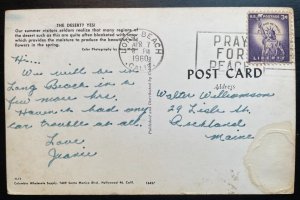 THE DESERT? YES!
Our winter visitors seldom realize that many regions of
the desert such as this are quite often blanketed with snow
which provides the moisture to produce the beautiful
flowers in the spring.
Color Photography by
LONG BEACH
APR 7
PM
1960
CALIF.
PRAY
FOR
PEACE
3¢
LIBERTY
POST CARD
Address
Hi...
We will be in
Long Beach in a
few more hrs.
Haven't had any
car troubles at all.
Love,
Jeanie
Walter Williamson
29 Lisle St.
Oakland
Maine
Published and Distributed by
Columbia Wholesale Supply, Santa Monica Blvd., Hollywood 46, Calif.